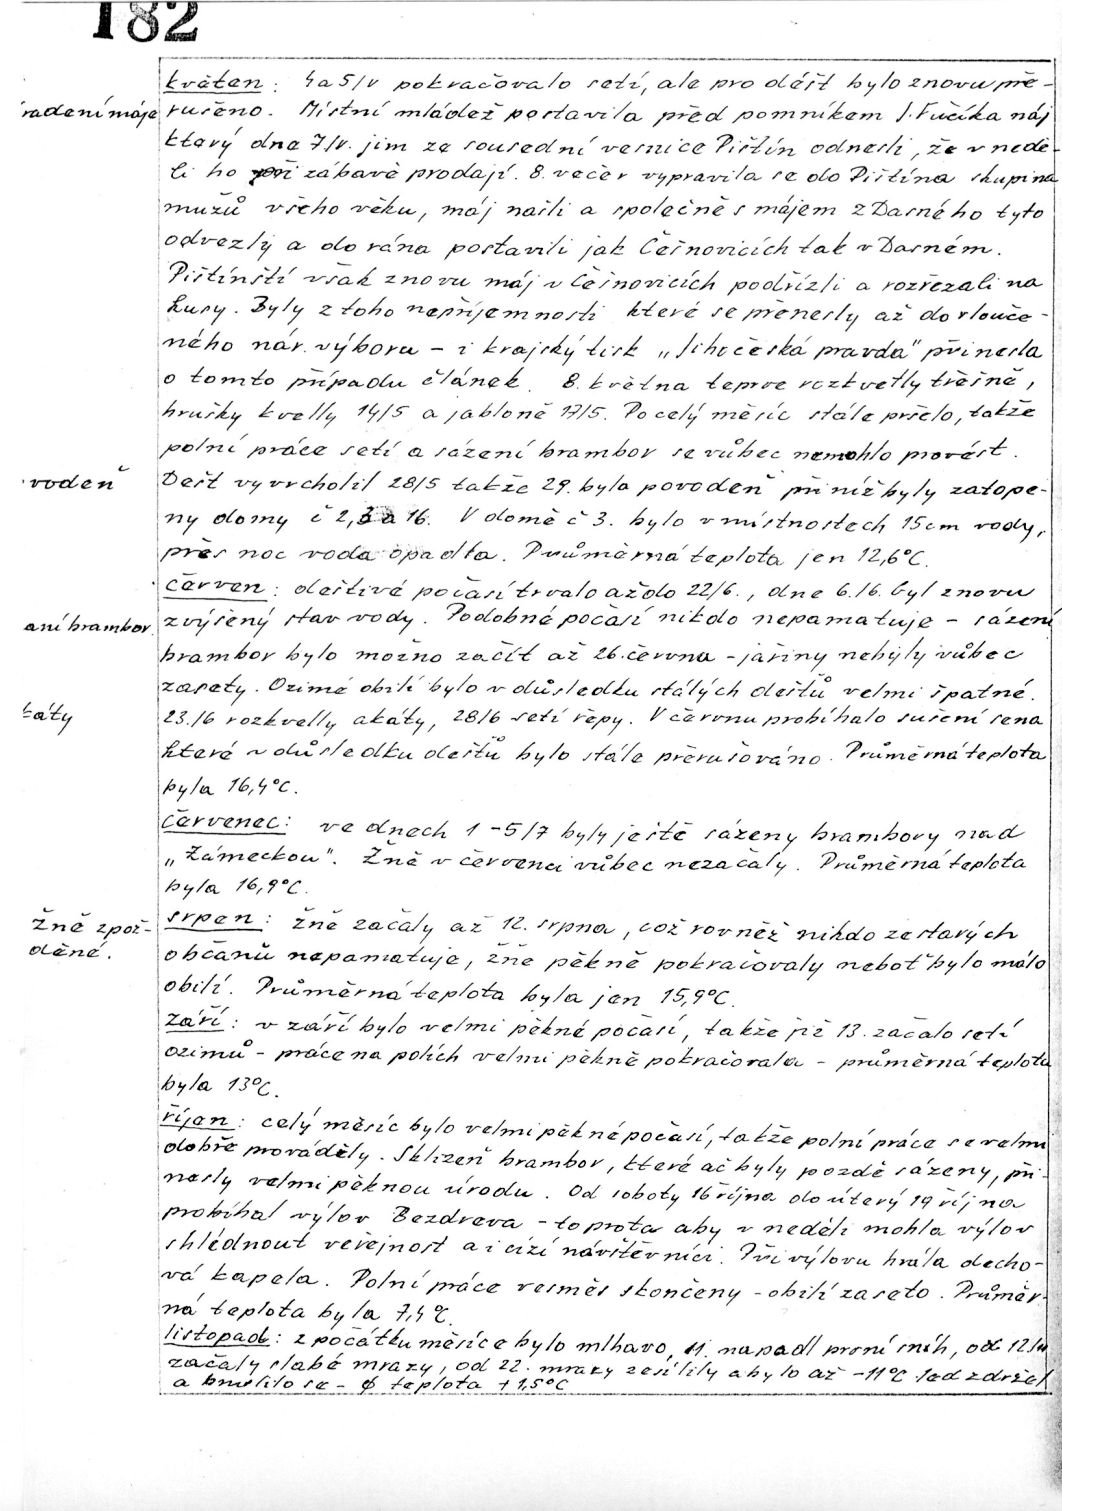 182
květen: 4a5/V pokračovalo setí, ale pro déšť bylo znovu pře-
radení máje rušeno. Místní mládež postavila před pomníkem J. Fučíka máj
který dne 7/V. jim ze sousední vesnice Pištín odnesli, že v nedě-
li ho při zábavě prodají. 8. večer vypravila se do Pištína skupina
mužů všeho věku, máj našli a společně s májem z Dasného tyto
odvezly a do rána postavili jak Češnovicích tak v Dasném.
Pištínští však znovu máj v Češnovicích podřízli a rozřezali na
kusy. Byly z toho nepříjemnosti které se přenesly až do slouče-
ného nár. výboru – i krajský tisk „Jihočeská pravda" přinesla
o tomto případu článek. 8. května teprve rozkvetly třešně,
hrušky kvetly 14/5 a jabloně 17/5. Po celý měsíc stále pršelo, takže
polní práce setí a sázení brambor se vůbec nemohlo provést.
vodeň Dešť vyvrcholil 28/5 takže 29. byla povodeň při níž byly zatope-
ny domy č 2, 3 a 16. V domě č 3. bylo v místnostech 15cm vody,
přes noc voda opadla. Průměrná teplota jen 12,6°C.
červen: deštivé počasí trvalo až do 22/6., dne 6./6. byl znovu
aní brambor. zvýšený stav vody. Podobné počasí nikdo nepamatuje – sázení
brambor bylo možno začít až 26. června – jařiny nebyly vůbec
zasety. Ozimé obilí bylo v důsledku stálých dešťů velmi špatné.
káty 23./6 rozkvetly akáty, 28/6 setí řepy. V červnu probíhalo sušení sena
které v důsledku dešťů bylo stále přerušováno. Průměrná teplota
byla 16,4°C.
červenec: ve dnech 1–5/7 byly ještě sázeny brambory nad
„Zámeckou". Žně v červenci vůbec nezačaly. Průměrná teplota
byla 16,9°C.
žně zpož- srpen: žně začaly až 12. srpna, což rovněž nikdo ze starých
děné. občanů nepamatuje, žně pěkně pokračovaly neboť bylo málo
obilí. Průměrná teplota byla jen 15,9°C.
září: v září bylo velmi pěkné počasí, takže již 13. začalo setí
ozimů – práce na polích velmi pěkně pokračovala – průměrná teplota
byla 13°C.
říjen: celý měsíc bylo velmi pěkné počasí, takže polní práce se velmi
dobře prováděly. Sklizeň brambor, které ač byly pozdě sázeny, při-
nesly velmi pěknou úrodu. Od soboty 16 října do úterý 19 října
probíhal výlov Bezdreva – to proto aby v neděli mohla výlov
shlédnout veřejnost a i cizí návštěvníci. Při výlovu hrála decho-
vá kapela. Polní práce vesměs skončeny – obilí zaseto. Průměr-
ná teplota byla 7,4°C.
listopad: z počátku měsíce bylo mlhavo, 11. napadl první sníh, od 12/11
začaly slabé mrazy, od 22. mrazy zesílily a bylo až –11°C led zdržel
a bruslilo se – ø teplota +1,5°C